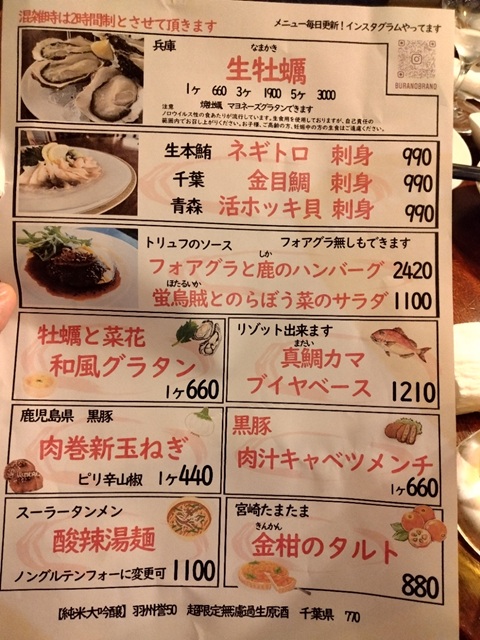 混雑時は2時間制とさせて頂きます
メニュー毎日更新！インスタグラムやってます
兵庫
なまかき
生牡蠣
1ヶ 660 3ヶ 1900 5ヶ 3000
焼牡蠣 マヨネーズグラタンできます
注意
ノロウイルス性の食あたりが流行しています。生食用を使用しておりますが、自己責任の
範囲内でお召し上がりください。お子様、ご高齢の方、妊娠中の方の生食はご遠慮ください。
BURANDBRAND
生本鮪 ネギトロ 刺身 990
千葉 金目鯛 刺身 990
青森 活ホッキ貝 刺身 990
トリュフのソース フォアグラ無しもできます
しか
フォアグラと鹿のハンバーグ 2420
ほたるいか
蛍烏賊とのらぼう菜のサラダ 1100
牡蠣と菜花
和風グラタン
1ヶ660
リゾット出来ます
まだい
真鯛カマ
ブイヤベース 1210
鹿児島県 黒豚
肉巻新玉ねぎ
ピリ辛山椒 1ヶ440
黒豚
肉汁キャベツメンチ
1ヶ660
スーラータンメン
酸辣湯麺
ノングルテンフォーに変更可 1100
宮崎たまたま
きんかん
金柑のタルト
880
【純米大吟醸】羽州誉50 超限定無濾過生原酒 千葉県 770